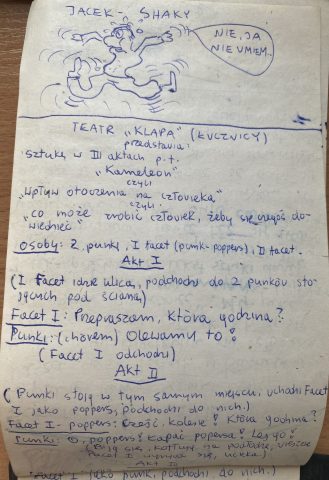 JACEK - SHAKY
NIE, JA
NIE UMIEM...
TEATR „KLAPA” (ŁUCZNICY)
przedstawia:
Sztukę w III aktach p.t.
„Kameleon”
czyli
„Wpływ otoczenia na człowieka”
czyli
„co może zrobić człowiek, żeby się czegoś do-
wiedzieć”
osoby: 2 punki, I facet (punk-poppers), II facet.
Akt I
(I Facet idzie ulicą, podchodzi do 2 punków sto-
jących pod ścianą)
Facet I: Przepraszam, która godzina?
Punki: (chórem) Olewamy to!
(Facet I odchodzi)
Akt II
(Punki stoją w tym samym miejscu, wchodzi Facet
I jako poppers, podchodzi do nich.)
Facet I - poppers: Cześć, kolesie! Która godzina?
Punki: O, poppers! Łapać popersa! Lać go!
(Biją się, na podłodze, wreszcie
Facet I wyrywa się, ucieka.)
Akt III
Facet I (jako punk, podchodzi do nich.)